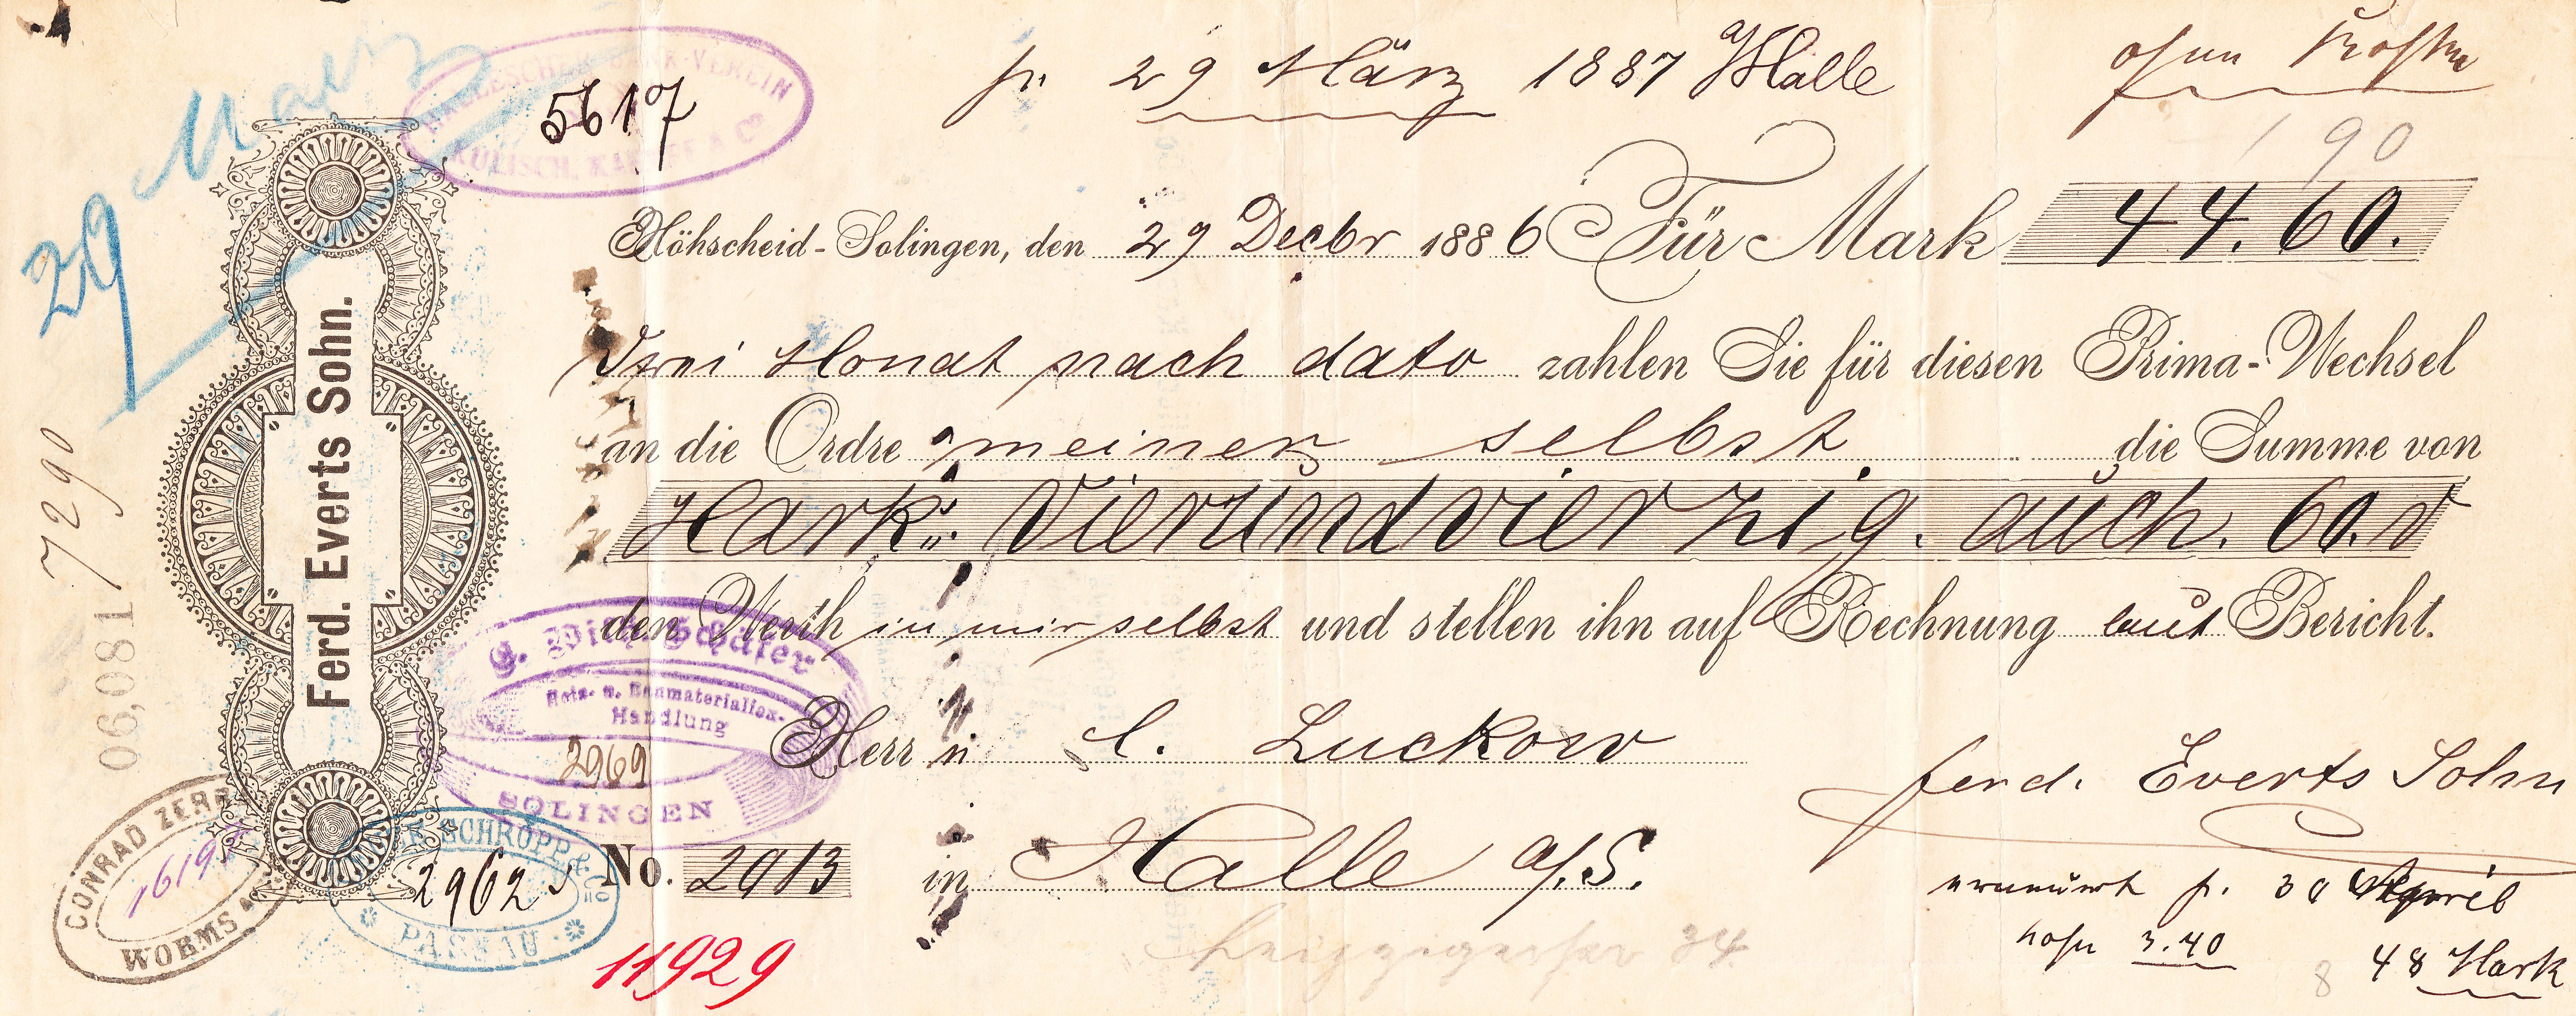 29 Maerz
HALLESCHER BANK-VEREIN
KULISCH, KAEMPF & Co
5617
pr. 29 März 1887 Halle
ohne Kosten
190
Höhscheid-Solingen, den 29 Decbr 1886 Für Mark 44.60.
Drei Monat nach dato zahlen Sie für diesen Prima-Wechsel
an die Ordre meiner selbst die Summe von
Mark: Vierundvierzig. auch. 60.
den Werth in mir selbst und stellen ihn auf Rechnung laut Bericht.
Herrn C. Luckow
in Halle a/S.
Ferd. Everts Sohn
Ferd. Everts Sohn.
7290
06,081
Holz- u. Baumaterialien-
Handlung
2969
SOLINGEN
No. 2913
CONRAD ZERR
1619
WORMS
SCHROPP & Co
2962
PASSAU
11929
Leipzigerstr 34
p. 30 April
3.40
8
48 Mark